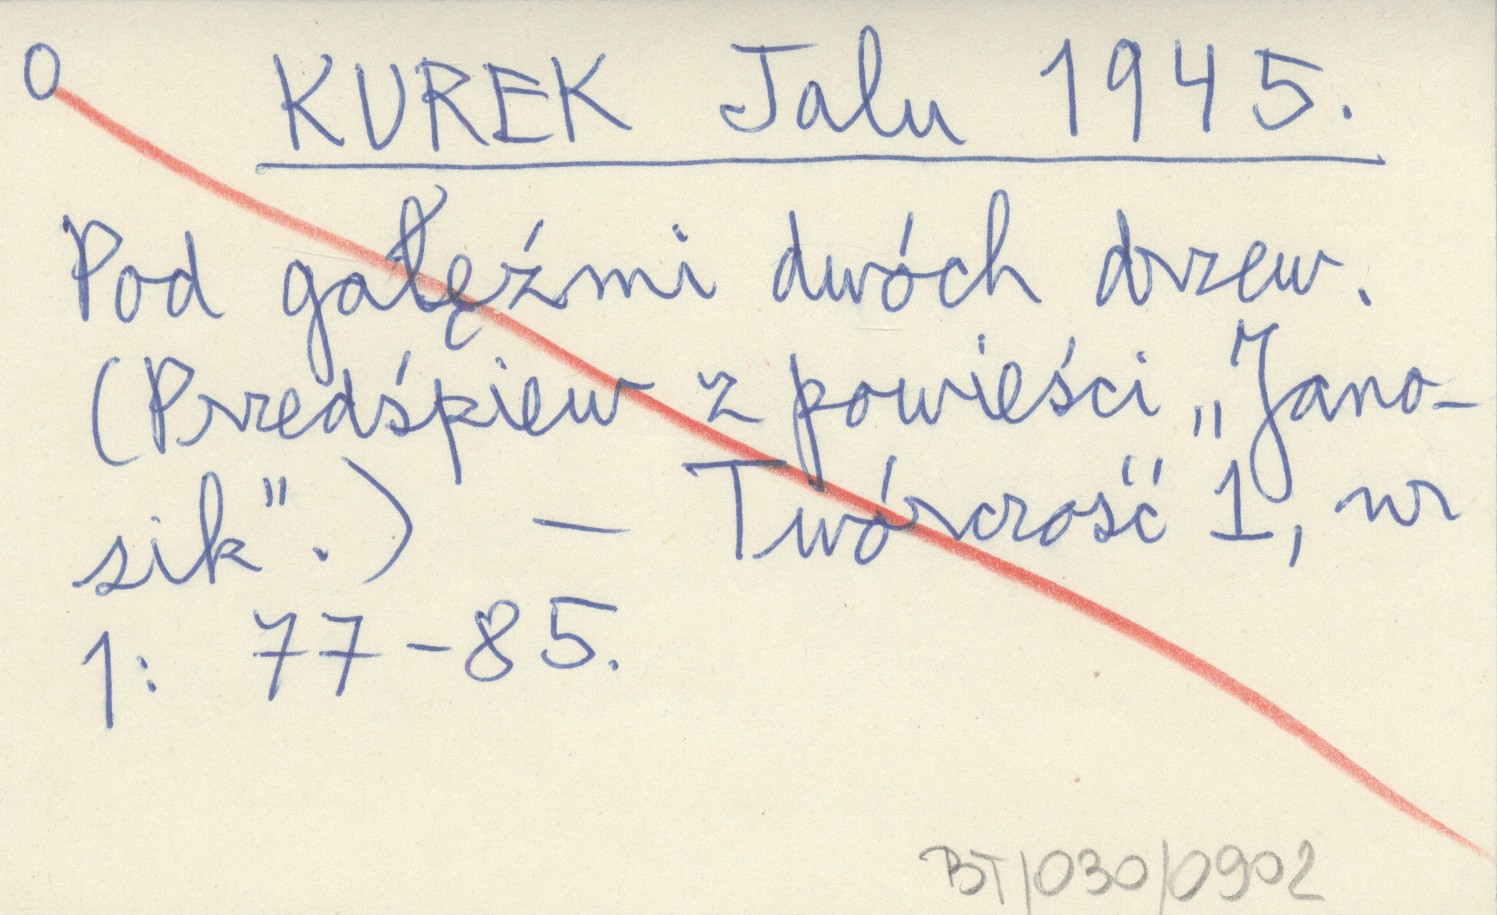 O KUREK Jalu 1945.
Pod gałęźmi dwóch drzew.
(Przedśpiew z powieści „Jano-
sik".) — Twórczość 1, nr
1: 77-85.
BT/030/0902